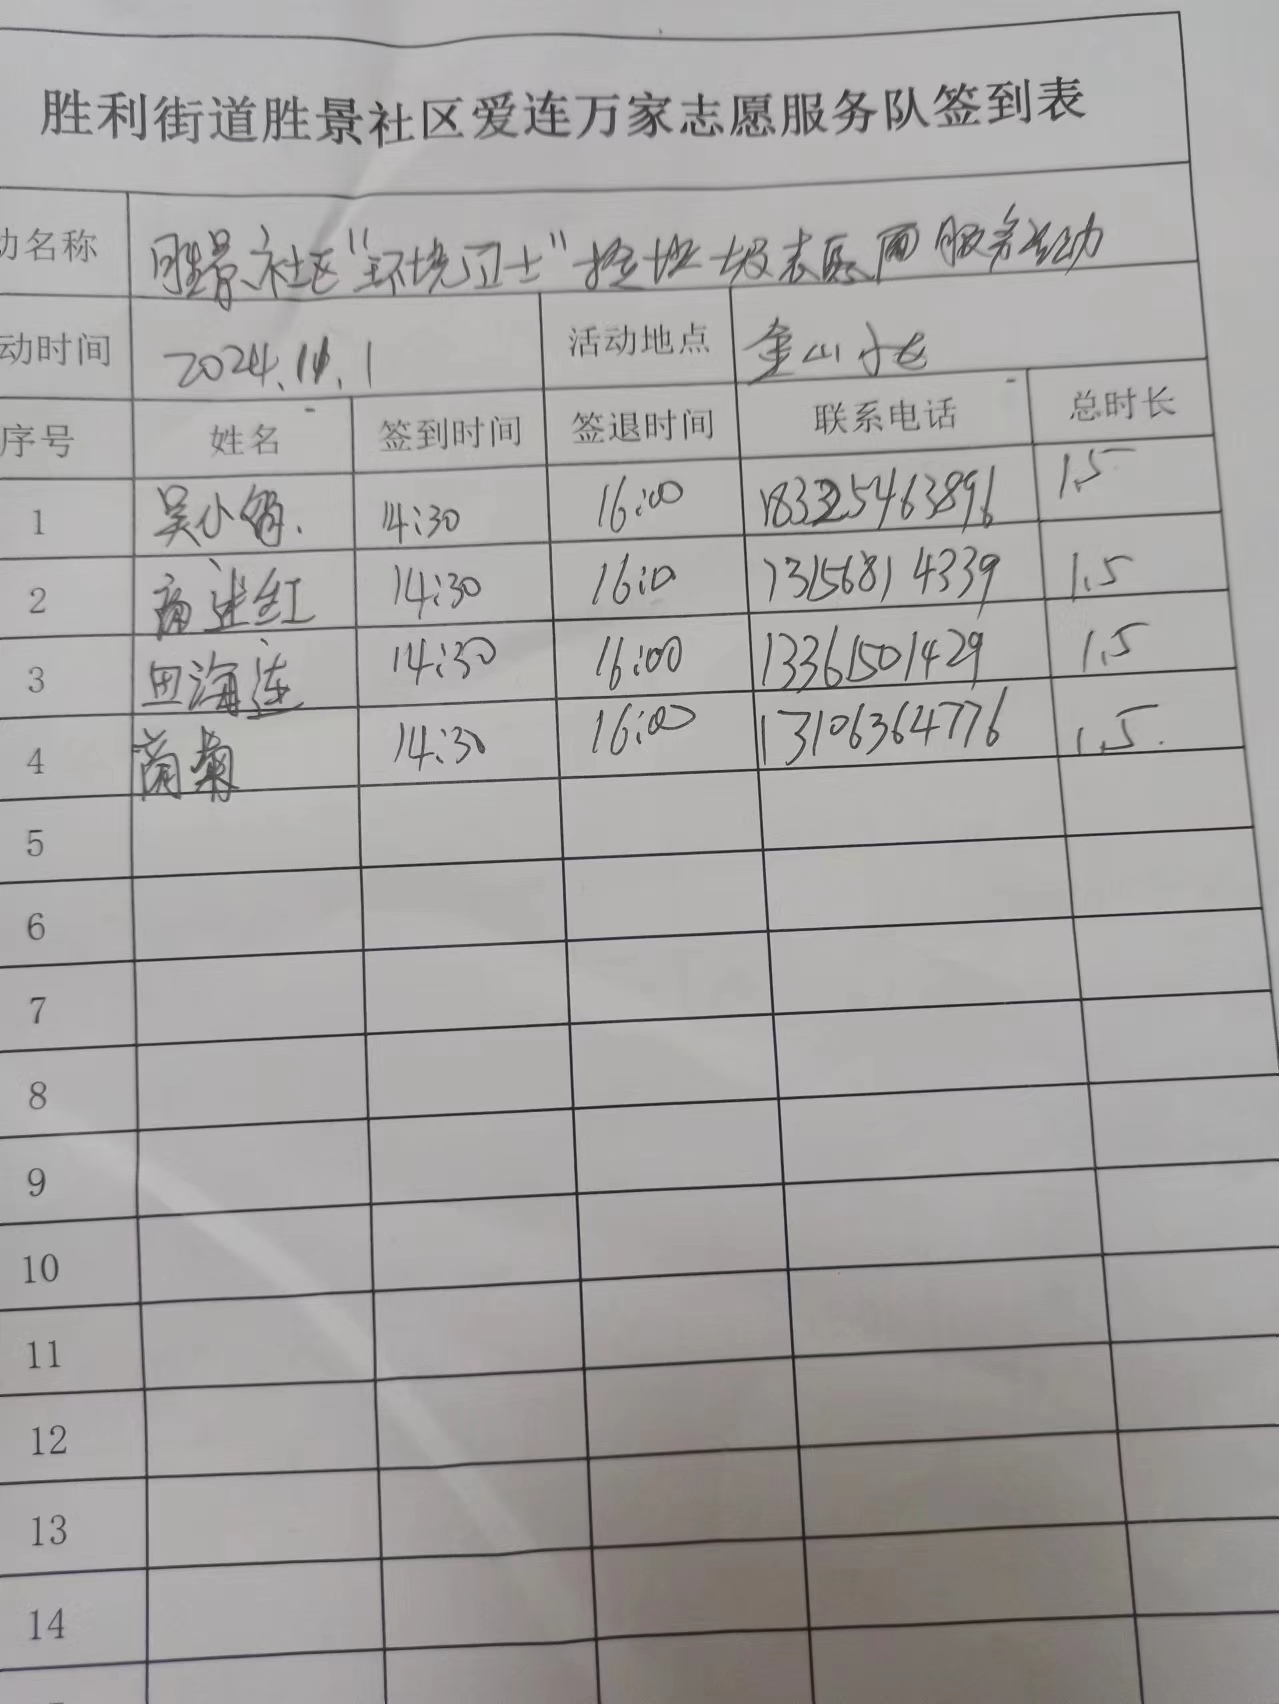 胜利街道胜景社区爱连万家志愿服务队签到表
动名称 胜景社区“环境卫士”捡垃圾志愿 服务活动
动时间 2024.11.1 活动地点 金山小
序号 姓名 签到时间 签退时间 联系电话 总时长
1 吴小 14:30 16:00 18325463896 1.5
2 红 14:30 16:0 13156814339 1.5
3 田海连 14:30 16:00 13361501429 1.5
4 商菊 14:30 16:00 13106364776 1.5
5
6
7
8
9
10
11
12
13
14